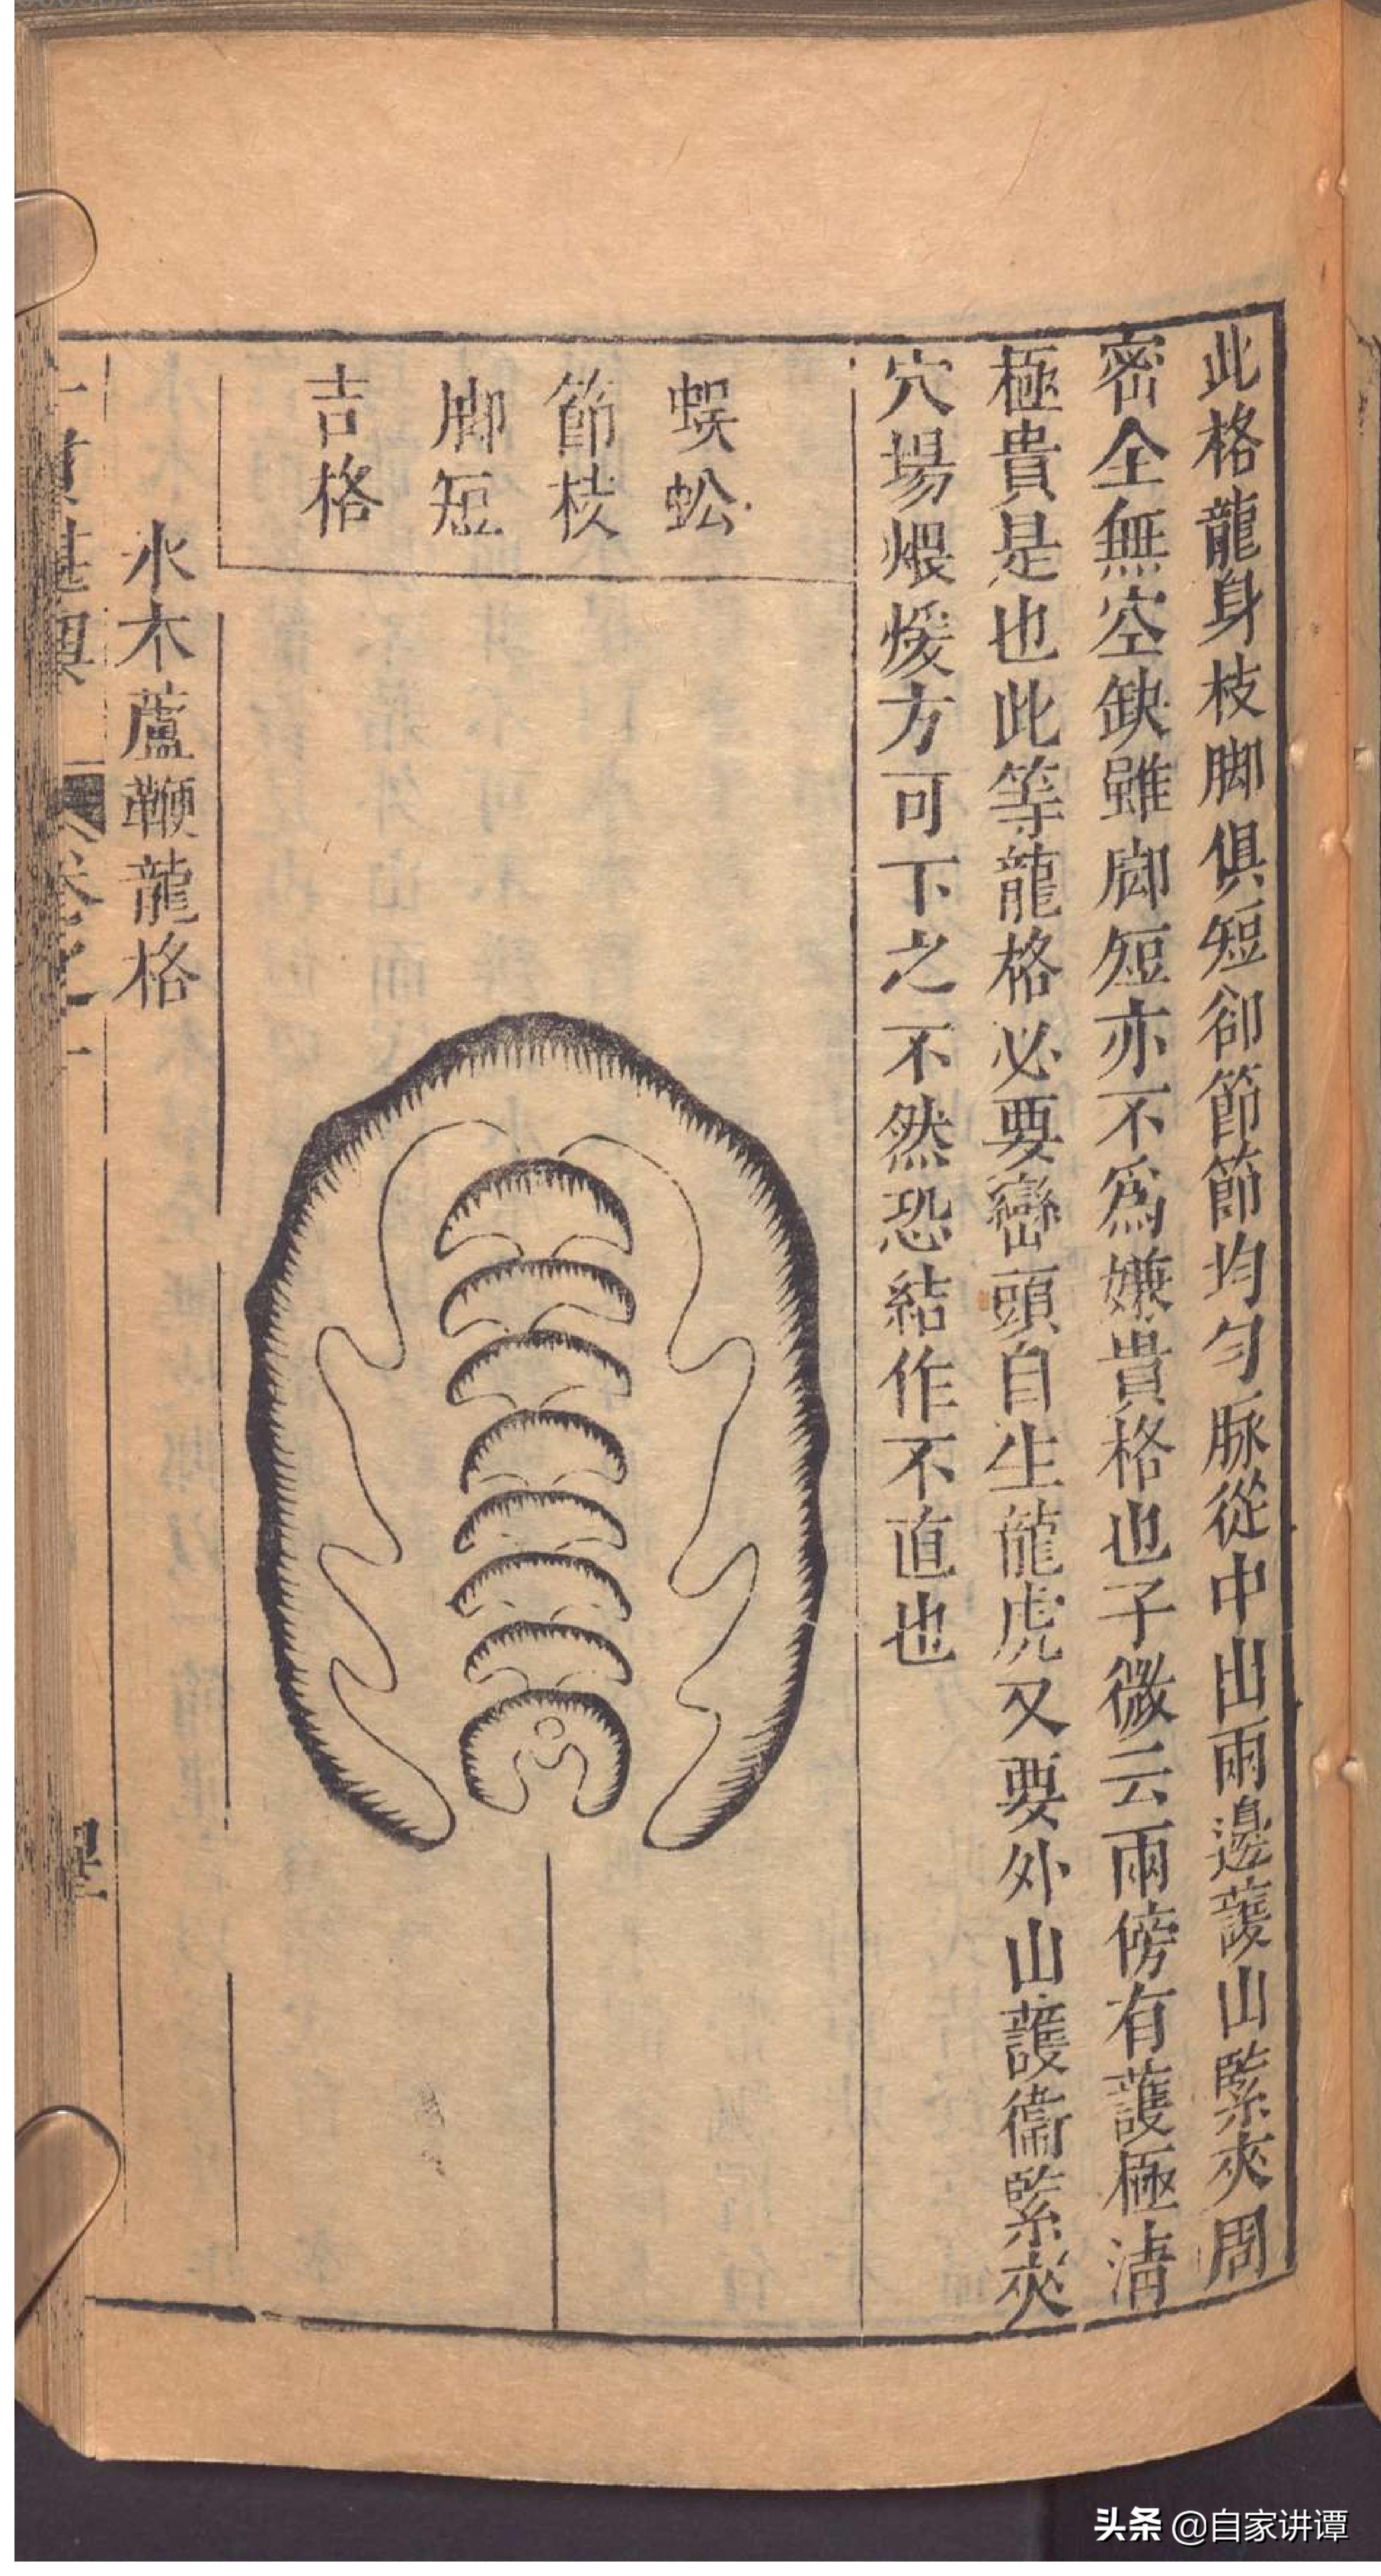 此格龍身枝脚俱短卻節節均勻脈從中出兩邊護山緊夾周
密全無空缺雖脚短亦不爲嫌貴格也子微云兩傍有護極清
極貴是也此等龍格必要巒頭自生龍虎又要外山護衞緊夾
穴場煨煖方可下之不然恐結作不直也
蜈蚣
節枝
脚短
吉格
水木蘆鞭龍格
卷之一
头条 @自家讲谭